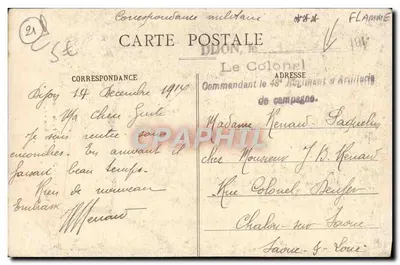 Correspondance militaire
*** FLAMME
21
5€
CARTE POSTALE
DIJON, le 191
Le Colonel
CORRESPONDANCE
ADRESSE
Commandant le 48e Régiment d'Artillerie
de campagne.
Dijon 14 Décembre 1914
Ma chère
Je suis rentré sans
encombres. En arrivant il
faisait beau temps.
Rien de nouveau
Embrasse
Renaud
Madame Renaud
chez Monsieur J. B. Renaud
Rue Colonel
Chalon sur Saône
Saône & Loire
CPARAMA